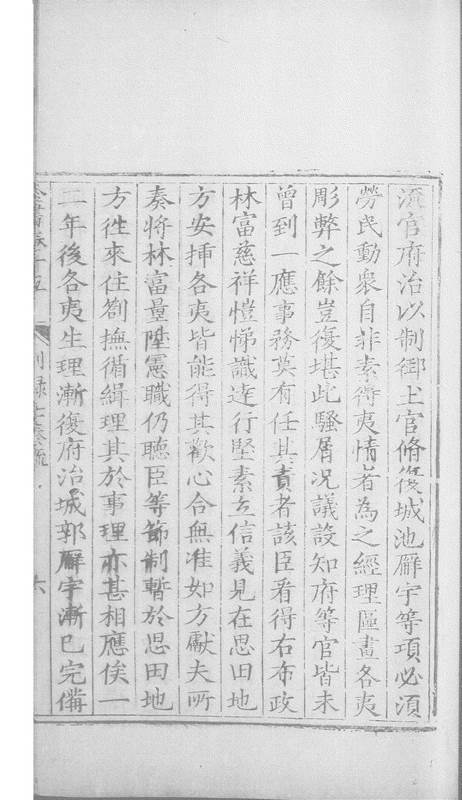 流官府治以制御土官脩復城池廨宇等項必須
勞民動衆自非素得夷情者為之經理區畫各夷
彫弊之餘豈復堪此騷屑况議設知府等官皆未
曾到一應事務莫有任其責者該臣看得右布政
林富慈祥愷悌識達行堅素立信義見在思田地
方安揷各夷皆能得其歡心合無准如方獻夫所
奏將林富量陞憲職仍聽臣等節制暫於思田地
方徃來住劄撫循緝理其於事理亦甚相應俟一
二年後各夷生理漸復府治城郭廨宇漸已完備
全書卷十五 別錄七奏疏 六